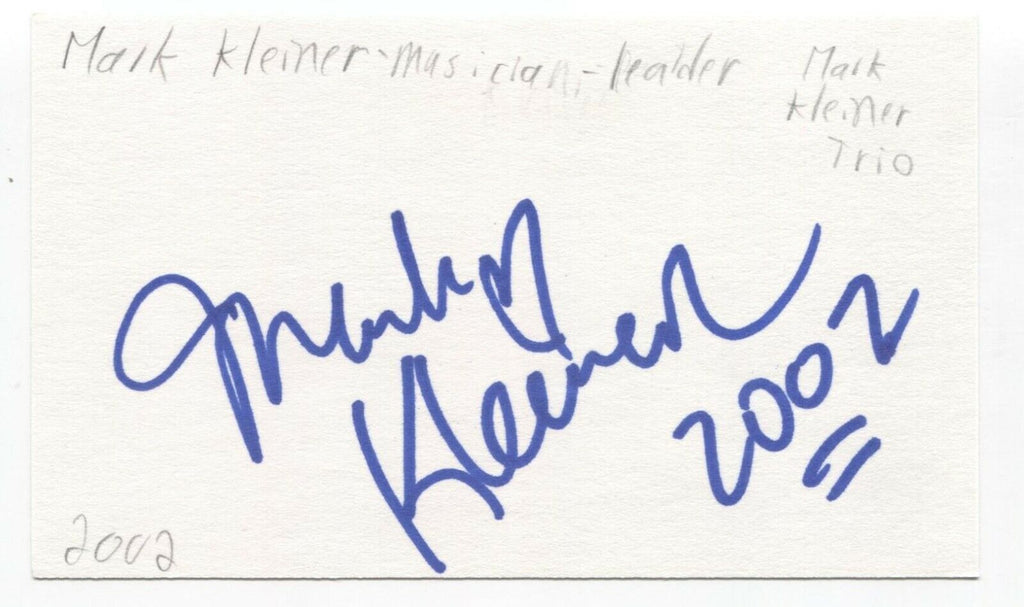 Mark Kleiner-Musician-lealder
Mark
Kleiner
Trio
Mark
Kleiner
2002
2002